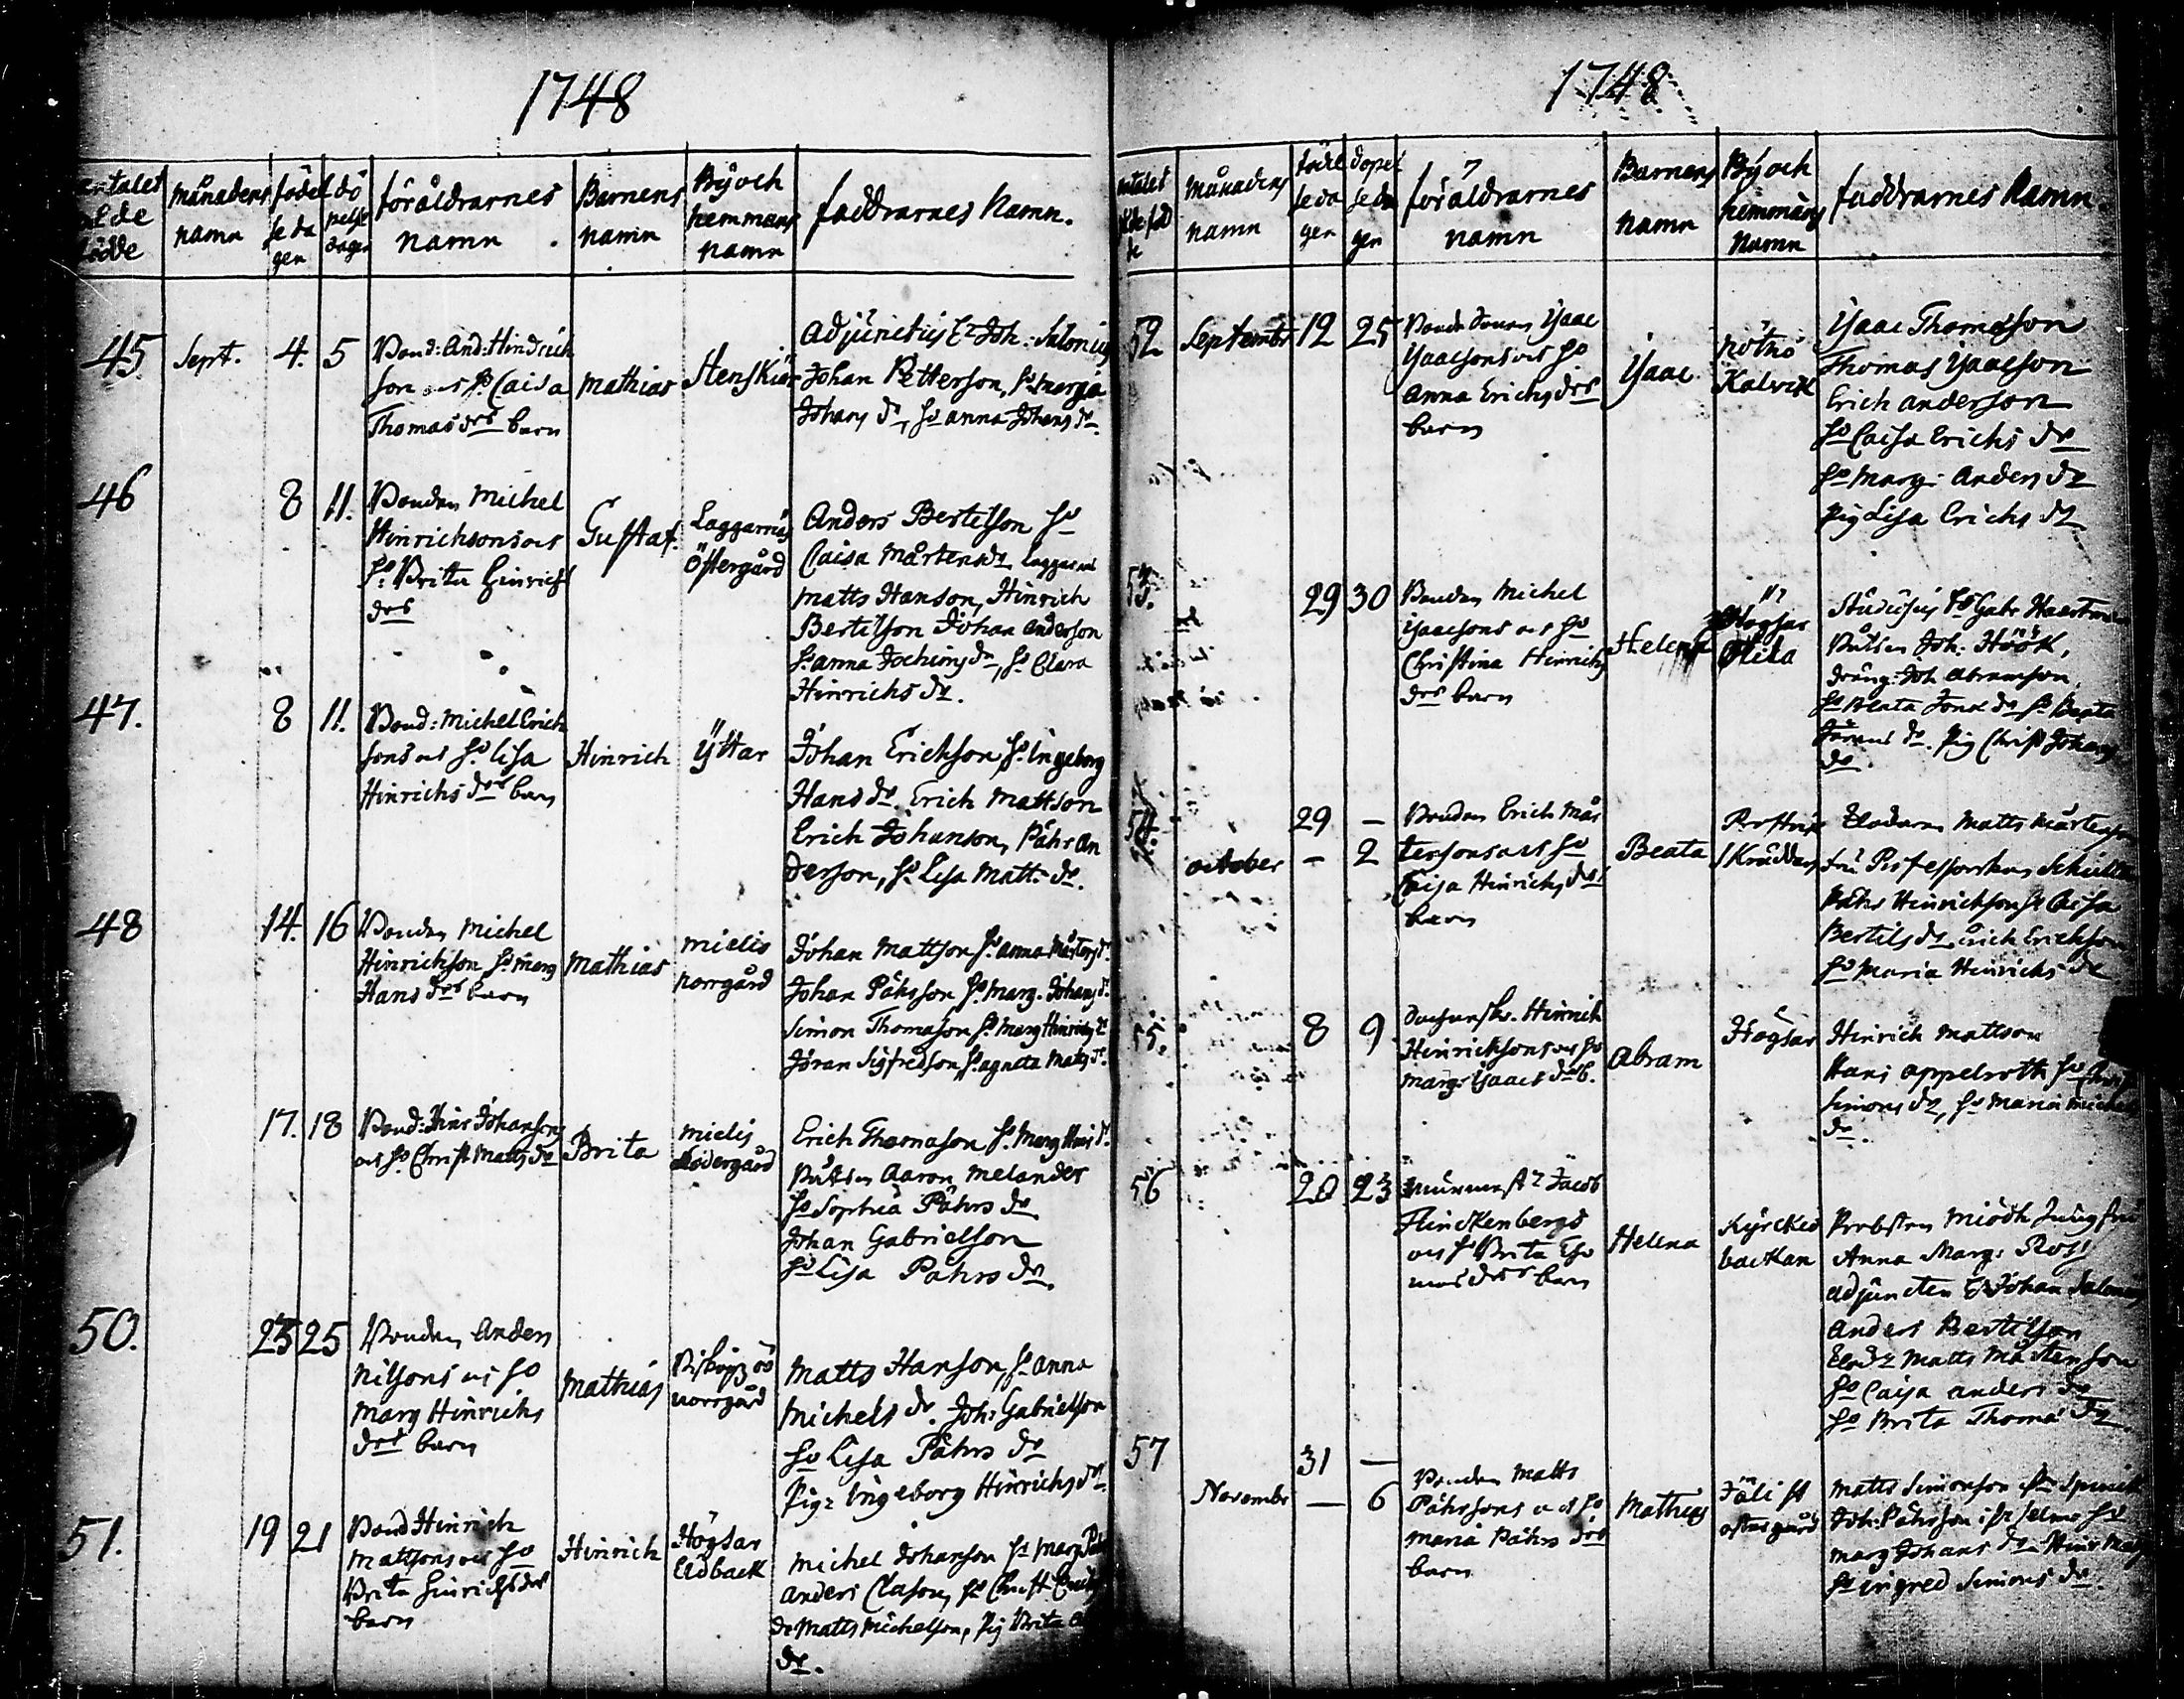 1748
antalet månadens födel dö föräldrarnes Barnens Bÿ och faddrarnes Namn.
på de namn se da pelse namn namn hemmans
födde gen dagen namn
45 Sept. 4. 5 Bond: And: Hindrich
son och h: Caisa
Thomas drs barn
Mathias
Stenskiär
Adjunctus Hr Joh: Salonius
Johan Petterson, h: marga
Johans dr, h: anna Johans dr.
46 8 11. Bonden Michel
Hinrichsons och
h: Brita Hinrichs
drs
Gustaf.
Laggarnäs
Östergård
Anders Bertilson h:
Caisa Mårtens dr Laggarnäs
matts Hanson, Hinrich
Bertilson Johan anderson
h: anna Jochims dr, h: Clara
Hinrichs dr.
47. 8 11. Bond: Michel Erich
sons och h: Lisa
Hinrichs drs barn
Hinrich
ÿttar
Johan Erickson, h: Ingeborg
Hans dr. Erich Mattson
Erich Johanson, Påhr An
derson, h: Lisa Matt: dr.
48 14. 16 Bonden Michel
Hinrichson h: Marg
Hans drs barn
Mathias
Mielis
norrgård
Johan Mattson h: anna Mårtens dr.
Johan Påhrsson h: Marg. Johans dr.
Simon Thomason h: Marg Hinrichs dr
Jöran Sigfredson h: agneta Matts dr.
17. 18 Bond: Hinr Johansons
och h: Christ Matts dr
Brita
Mielis
Södergård
Erich Thomason h: Marg Hans dr.
Aaron Melander
h: Sophia Påhrs dr
Johan Gabrielson
h: Lisa Påhrs dr.
50. 23 25 Bonden Anders
Nilsons och h:
Marg Hinrichs
drs barn
Mathias
norrgård
Matts Hanson, h: anna
Michels dr. Joh: Gabrielson
h: Lisa Påhrs dr
Pig: Ingeborg Hinrichs dr
51. 19 21 Bond Hinrich
Mattsons och h:
Brita Hinrichs drs
barn
Hinrich
Högsar
Lidback
Michel Johanson h: Marg
Anders Clason, h: Christ
dr Matts Michelson, Pig Brita
dr.
1748
antalet Månadens födel döpel föräldrarnes Barnens Bÿ och faddrarnes Namn.
på de föd namn se da se da namn namn hemmans
de gen gen Namn
52 Septembr 12 25 Isaac
Isaacsons och h:
Anna Erichs drs
barn
Isaac
Nötnö
Kalvik
Isaac Thomason
Thomas Isaacson
Erich anderson
h: Caisa Erichs dr
h: Marg: Anders dr
Pig Lisa Erichs dr
53. 29 30 Bonden Michel
Isaacsons och h:
Christina Hinrichs
drs barn
Helena
Högsar
Studiosus Hr Gabr Haartman
Joh: Höök,
dräng: Joh abramson,
h: Beata Jona dr h: Beata
Jörans dr. Pig Christ Johans
dr.
54. 29 — Bonden Erich Mår
october — 2 tensons och h:
Caisa Hinrichs drs
barn
Beata
Skräddars
Matts Mårtenson
fru
Påhr Hinrichson h: Caisa
Bertils dr Erich Erickson
h: Maria Hinrichs dr
55. 8 9 Hinrich
Hinrichsons och h:
Marg: Isaacs drs b.
Abram
Högsar
Hinrich Mattson
Hans Appelroth h:
Simons dr, h: Maria Michels
dr.
56 20 23 Jacob
Flinckenbergs
och h: Brita Tho
mas drs barn
Helena
Kÿrckio
backan
Probsten Miödh Jungfru
Anna Marg: Ross
adjuncten Hr Johan Salonius
Anders Bertilson
Matts Mårtenson
h: Caisa anders dr
h: Brita Thoma dr
57 31 —
Novembr — 6 Bonden Matts
Påhrsons och h:
maria Påhrs drs
barn
Mathias
östergård
Matts Simonson
Joh: Påhrson
marg Johans dr Hinr
h: Ingred Simons dr.